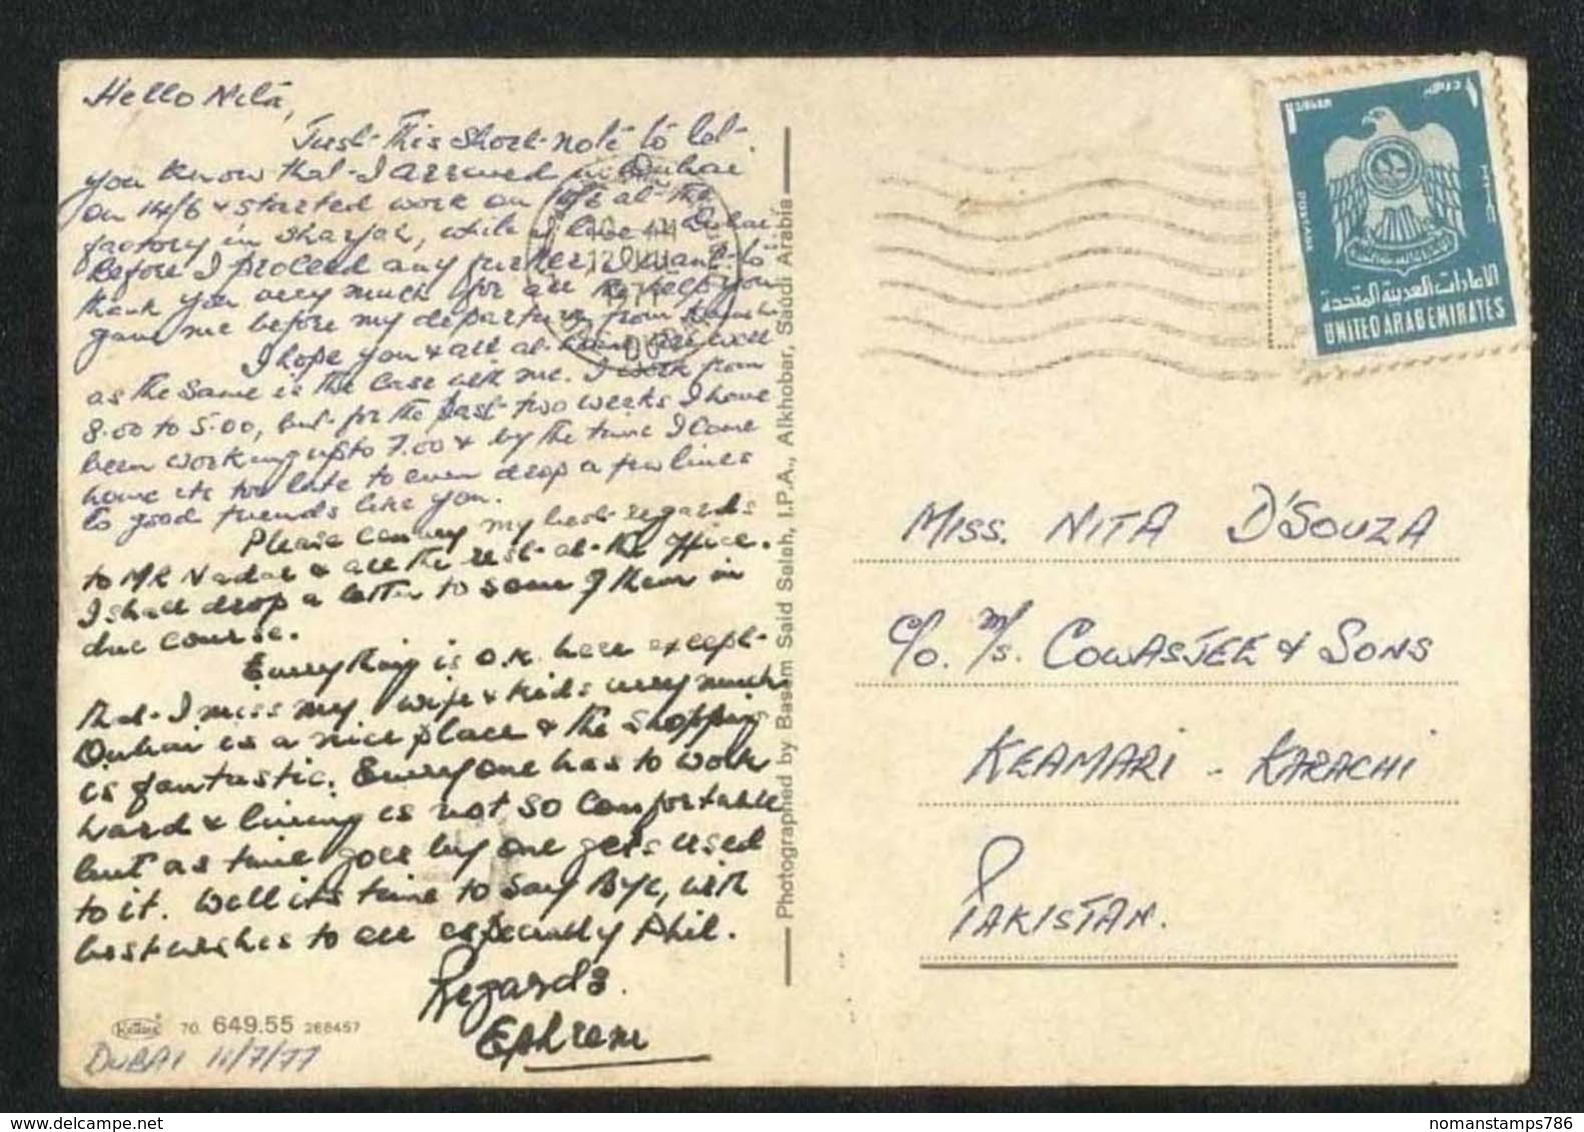 Hello Nita,
Just this short note to let
you know that I arrived in Dubai
on 14/6 & started work on at the
factory in Sharjah, while I live in Dubai.
Before I proceed any further, I want to
thank you very much for all the help you
gave me before my departure from Karachi
I hope you & all at home are well
as the same is the case with me. I work from
8.00 to 5.00, but for the past two weeks I have
been working upto 7.00 & by the time I come
home its too late to even drop a few lines
to good friends like you.
Please convey my best regards
to MR Nadar & all the rest at the office.
I shall drop a letter to some of them in
due course.
Everything is O.K. here except
that I miss my wife & kids very much
Dubai is a nice place & the shopping
is fantastic. Everyone has to work
hard & living is not so comfortable
but as time goes by one gets used
to it. Well its time to say Bye, with
best wishes to all especially Phil.
Regards.
Ephrem
70. 649.55 268457
DUBAI 11/7/77
Photographed by Basam Said Salah, I.P.A., Alkhobar, Saudi Arabia
1 DIRHAM
درهم ١
POSTAGE
بريد
الامارات العربية المتحدة
UNITED ARAB EMIRATES
MISS. NITA D'SOUZA
C/O. M/S. COWASJEE & SONS
KEAMARI - KARACHI
PAKISTAN.
www.delcampe.net
nomanstamps786